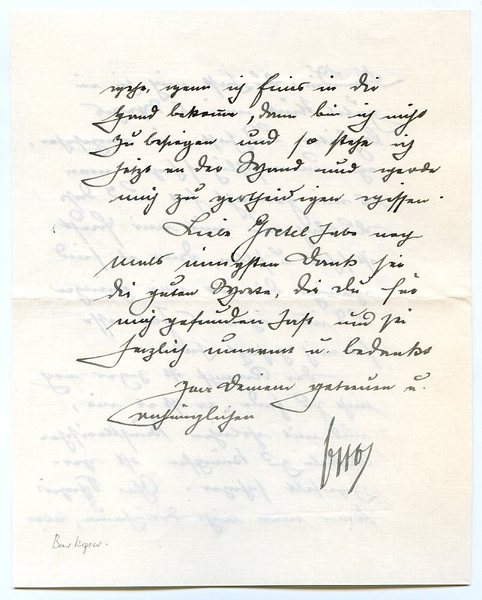 wehe, wenn ich Eines in die
Hand bekomme, dann bin ich nicht
zu besiegen und so stehe ich
jetzt an der Wand und werde
mich zu vertheidigen wissen.
Liebe Gretel habe noch
mals innigsten Dank für
die guten Worte, die Du für
mich gefunden hast und sei
herzlich umarmt u. bedankt
von Deinem getreuen u.
anhänglichen
Otto